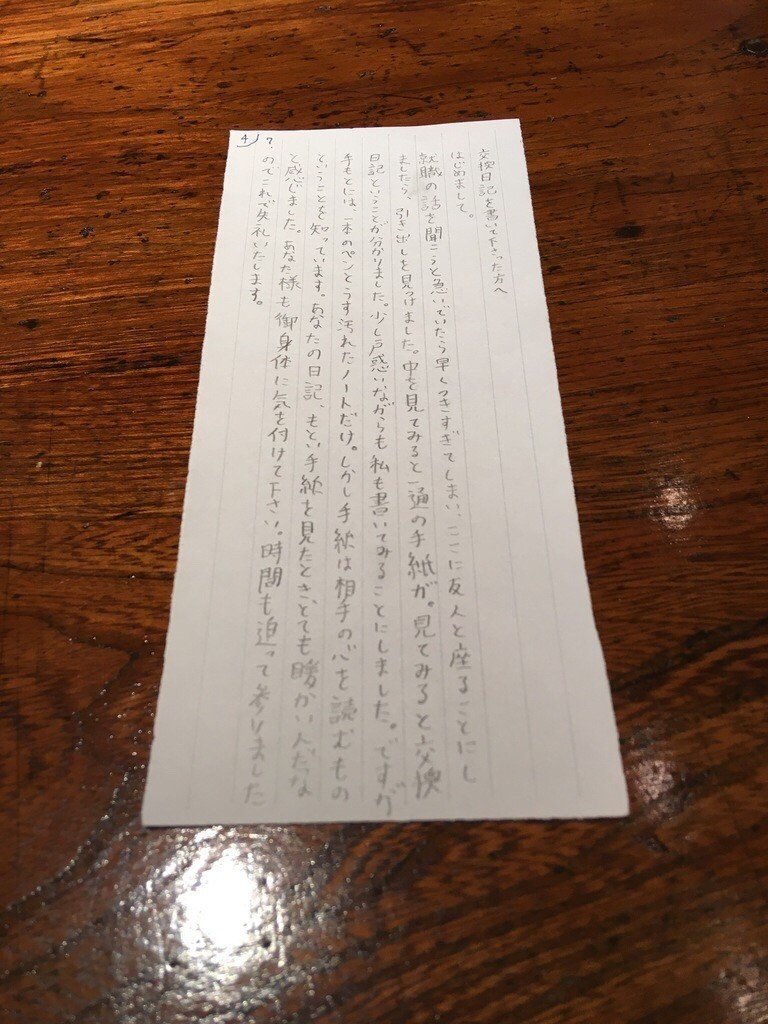 交換日記を書いて下さった方へ
はじめまして。
就職の話を聞こうと急いでいたら早くつきすぎてしまい、ここに友人と座ることにし
ましたら、引き出しを見つけました。中を見てみると一通の手紙が。見てみると交換
日記ということが分かりました。少し戸惑いながらも私も書いてみることにしました。ですが
手もとには、一本のペンとうす汚れたノートだけ。しかし手紙は相手の心を読むもの
ということを知っています。あなたの日記、もとい手紙を見たとき、とても暖かい人だな
と感じました。あなた様も御身体に気を付けて下さい。時間も迫って参りました
のでこれで失礼いたします。
4